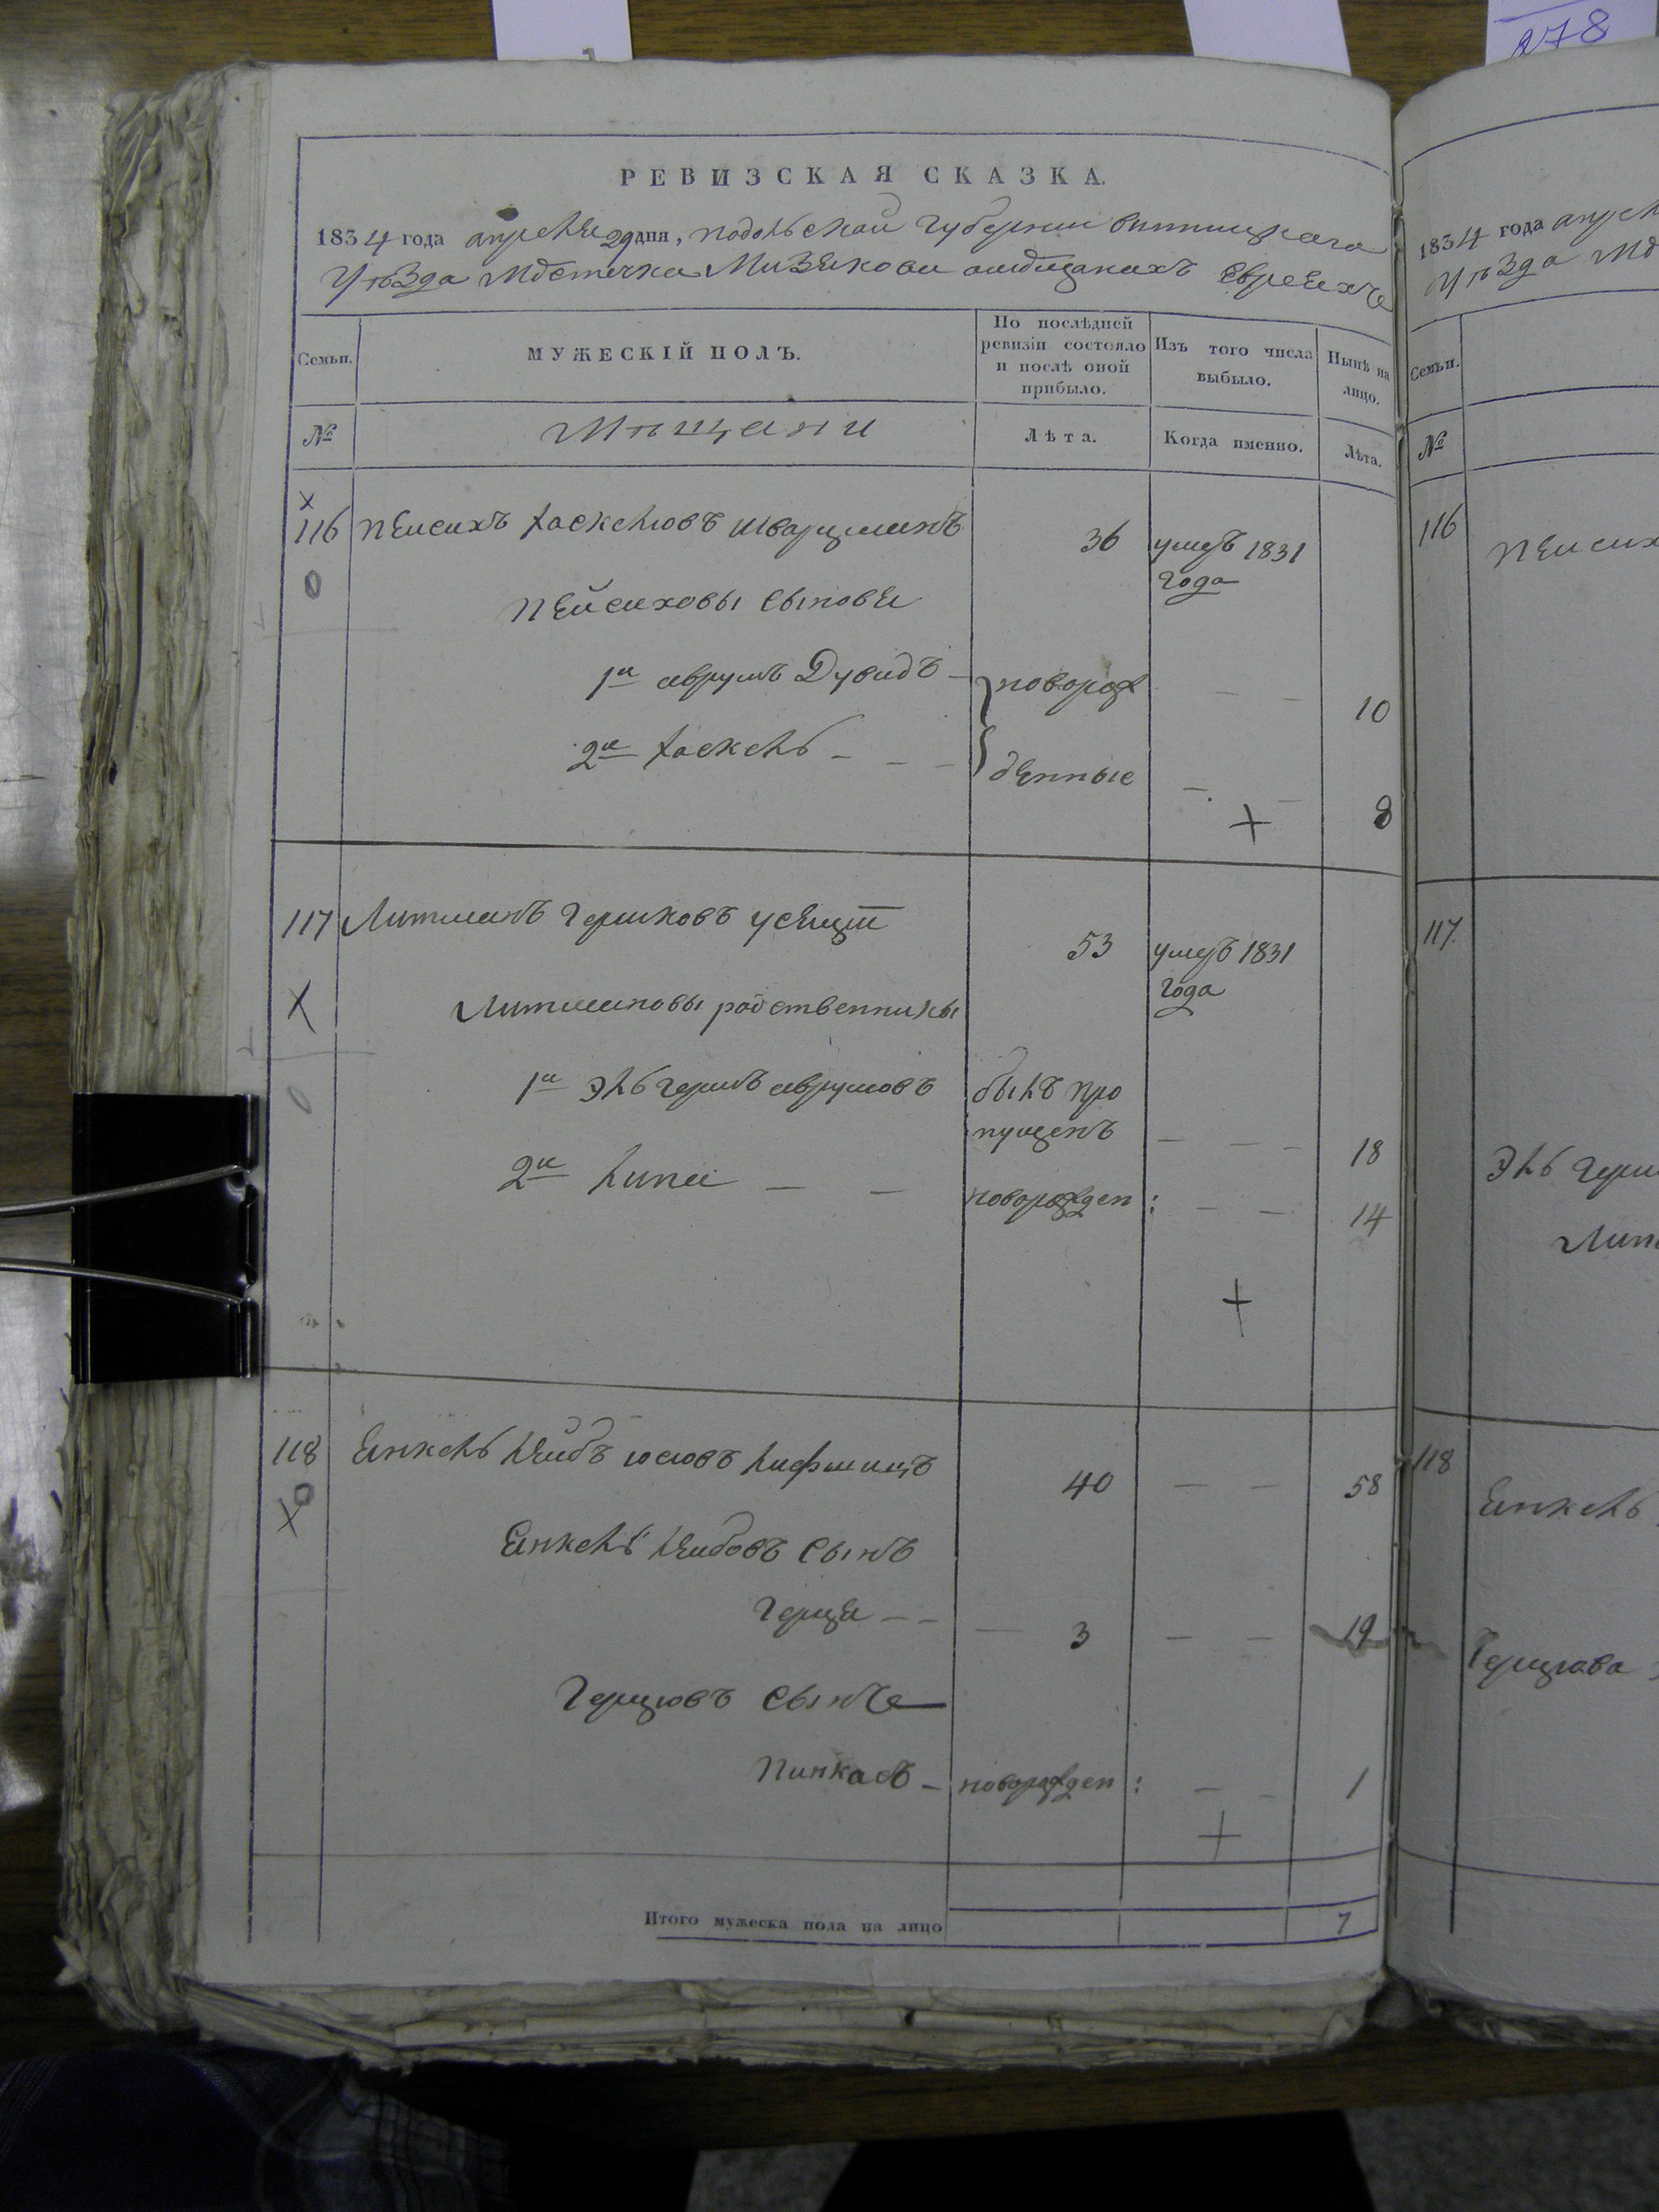 278
РЕВИЗСКАЯ СКАЗКА.
1834 года апреля 29 дня, подольской губернии винницкаго
уѣзда мѣстечка Мизякова омѣщанахъ евреяхъ
Семьи.
МУЖЕСКІЙ ПОЛЪ.
По послѣдней ревизіи состояло и послѣ оной прибыло.
Изъ того числа выбыло.
Нынѣ на лицо.
№
Мѣщани
Лѣта.
Когда именно.
Лѣта.
116 Пейсихъ Хаскелювъ шварцманъ 36 умеръ 1831
года
Пейсиховы сыновя
1й аврумъ Дувидъ – новорож – – 10
2й хаскель – – – денные – – 8
117 Литманъ Гершковъ 53 умеръ 1831
года
Литмановы родственники
1й Эль гершъ аврумовъ былъ про
пущенъ – – – 18
2й липа – – новорожден: – – 14
118 Янкель лейбъ юсювъ лифшицъ 40 – – 58
Янкель лейбовъ сынъ
Герця – – – 3 – – 19
Герцювъ сынъ
Пинкасъ – новорожден: – – 1
Итого мужеска пола на лицо 7
1834 года апрел
уѣзда мѣ
Семьи.
№
116
Пейсих
117.
Эль Герш
Лип
118
Янкель
Герцюва